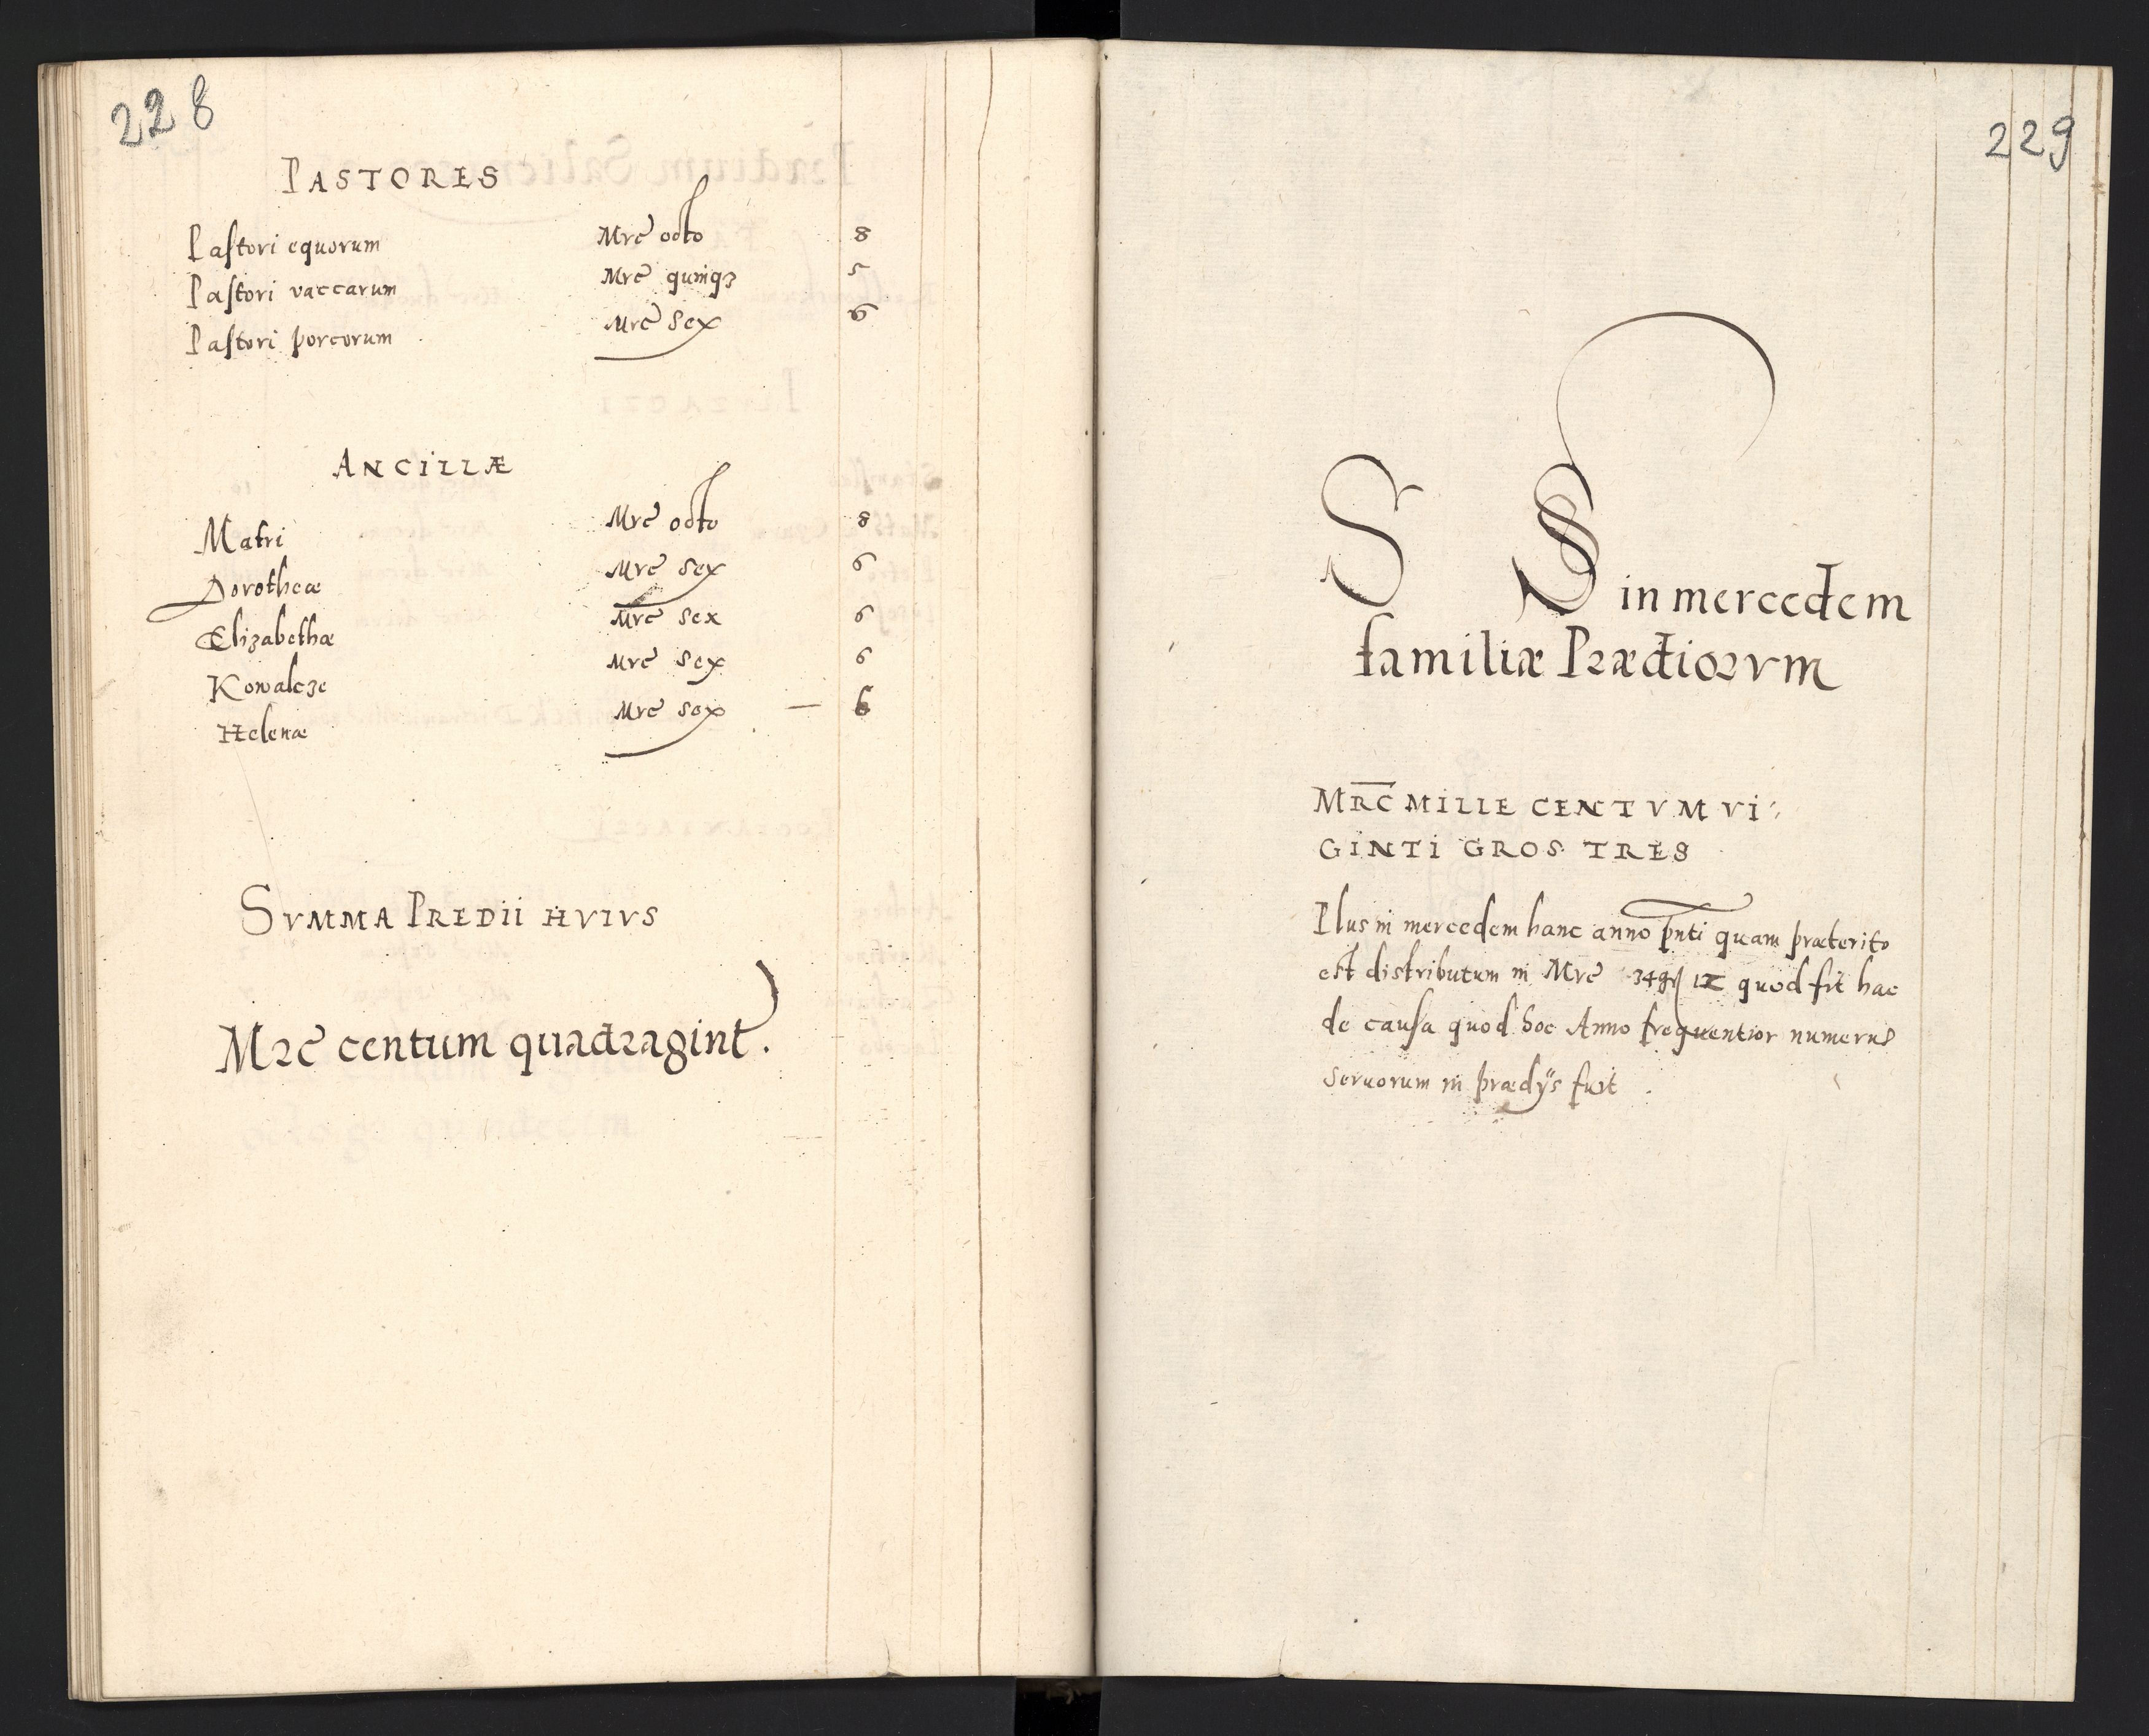 228
PASTORES
Pastori equorum Mrc octo 8
Pastori vaccarum Mrc quinqꝫ 5
Pastori porcorum Mrc sex 6
ANCILLÆ
Matri Mrc octo 8
Dorotheæ Mrc sex 6
Elizabethæ Mrc sex 6
Kowalcze Mrc sex 6
Helenæ Mrc sex — 6
SVMMA PREDII HVIVS
Mrc centum quadragint.
229
S S in mercedem
familiæ Prædiorvm
MRC MILLE CENTVM VI
GINTI GROS TRES
Plus in mercedem hanc anno pnti quam præterito
est distributum in Mrc 34 IX quod fit hac
de causa quod hoc Anno frequentior numerus
seruorum in prædijs fuit.